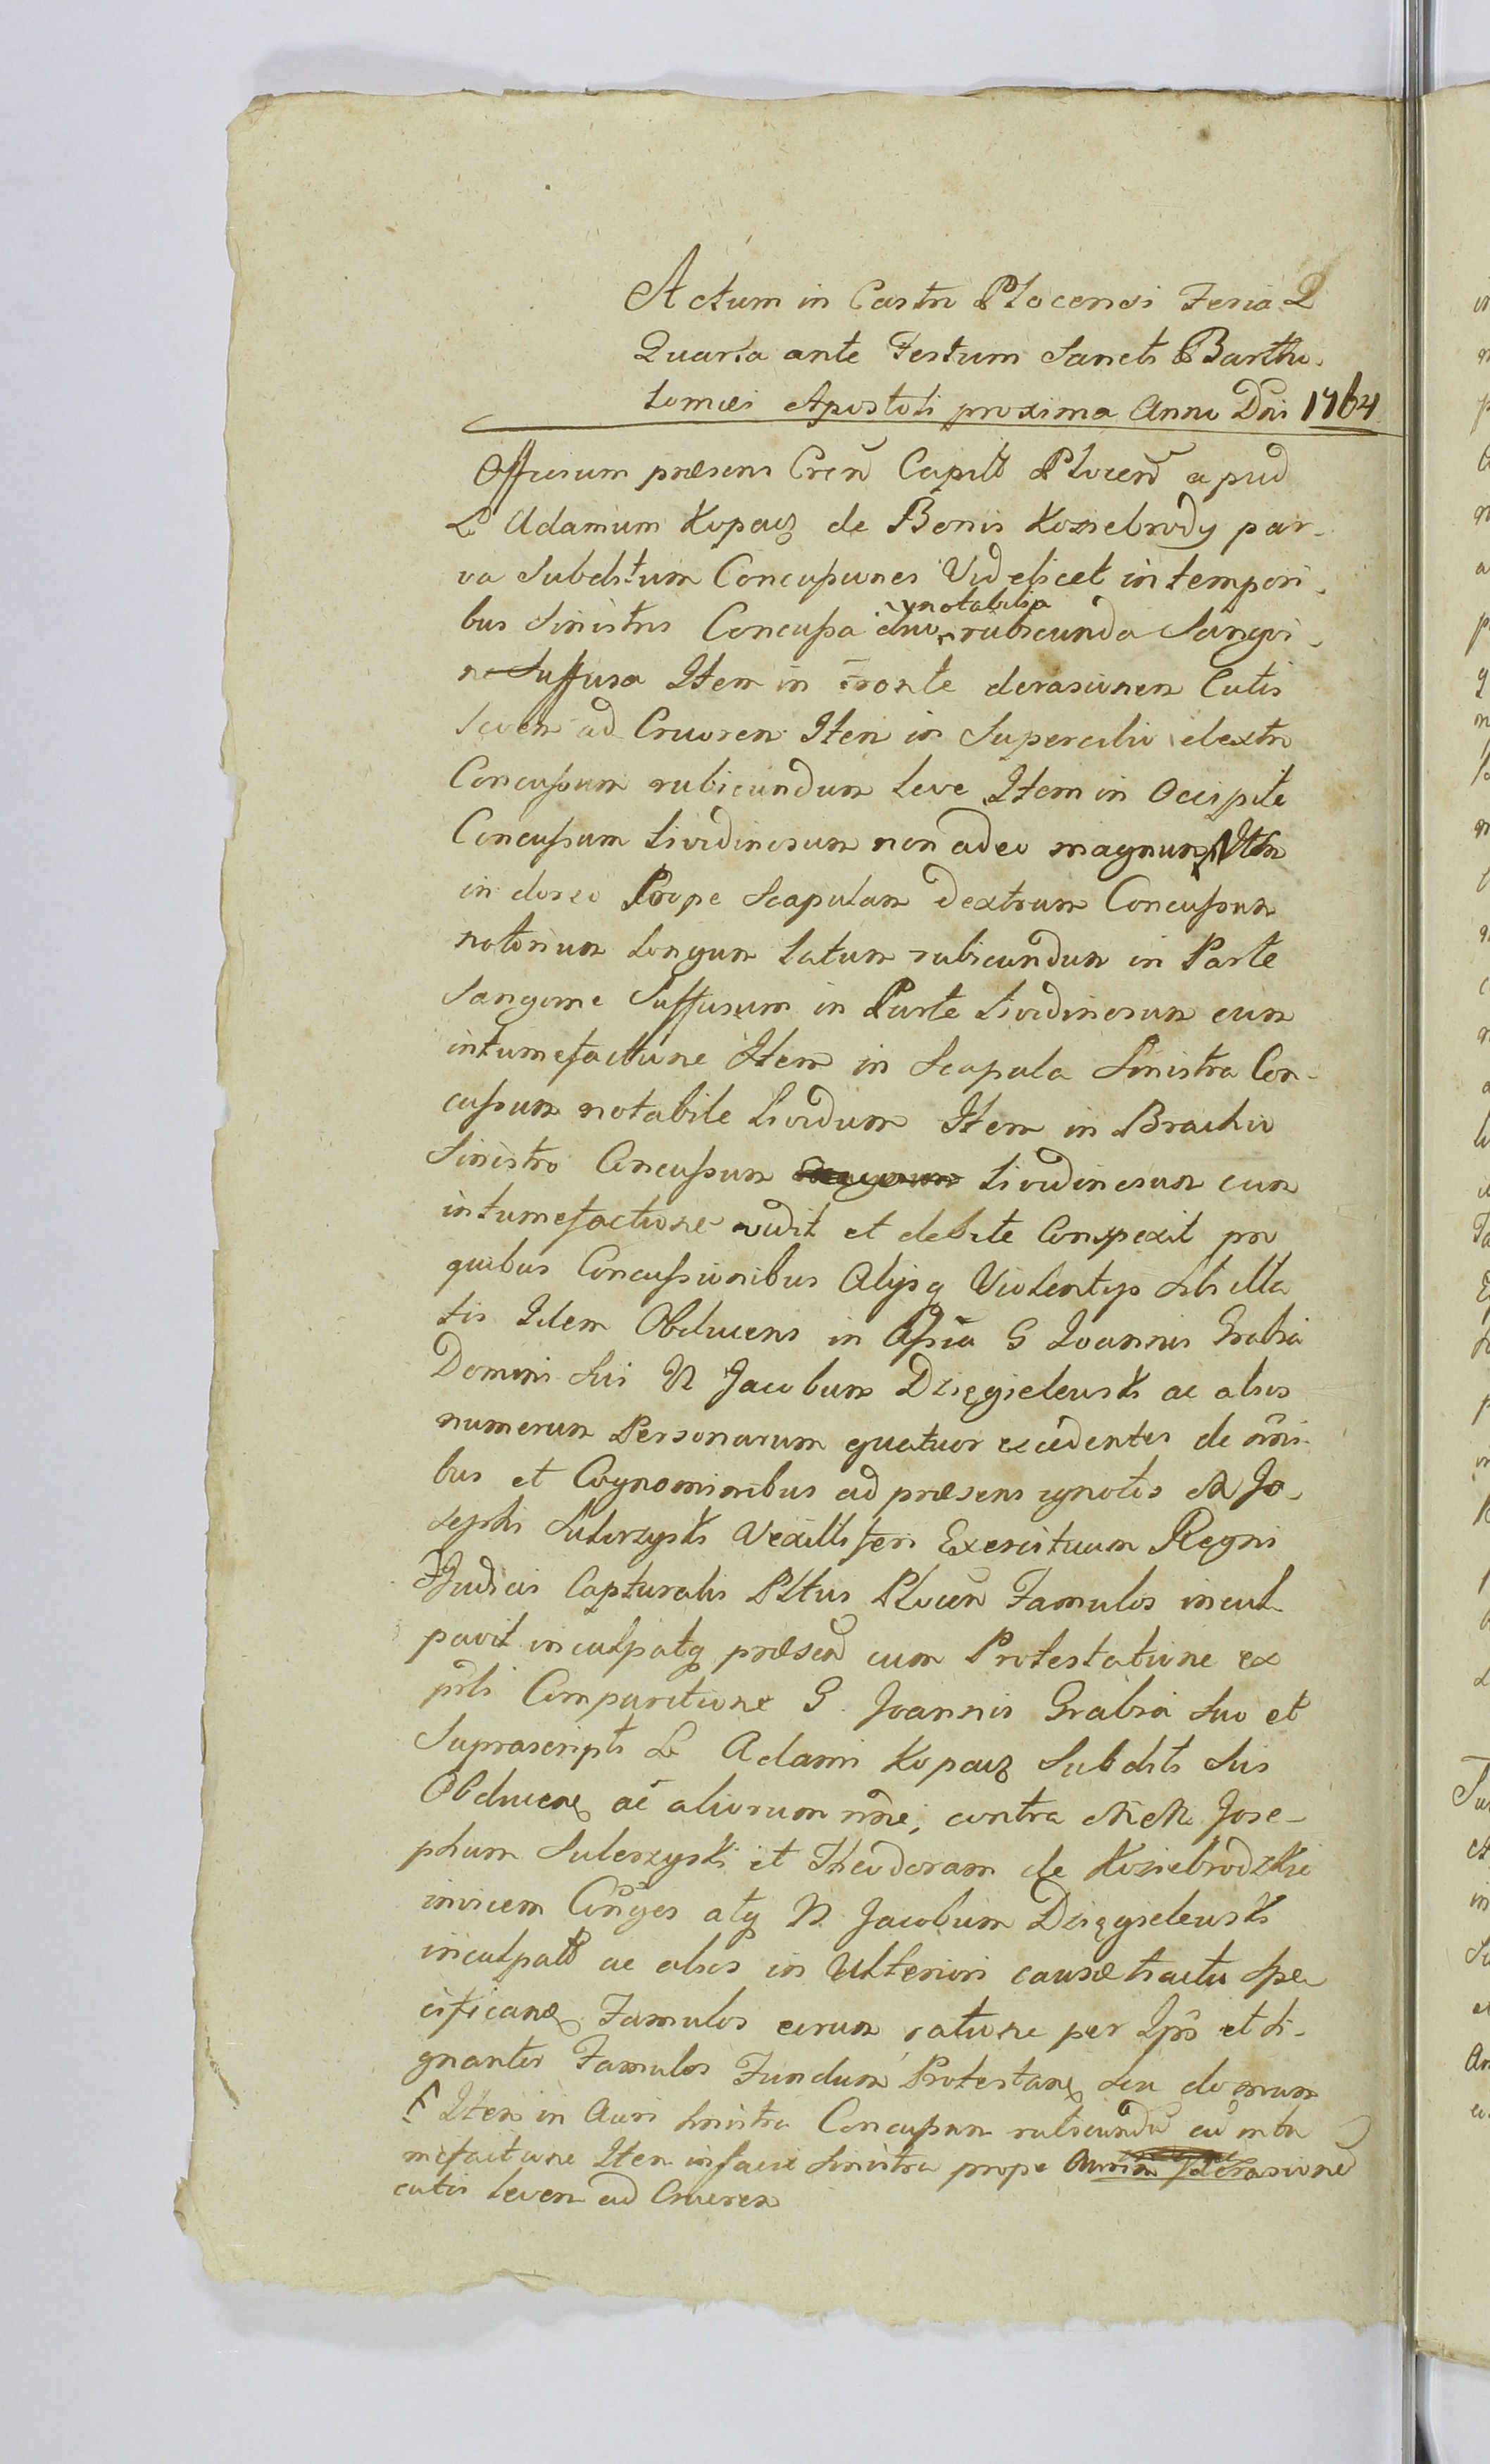 Actum in Castro Plocensi Feria Q
Quarta ante Festum Sancti Bartho-
lomæi Apostoli proxima Anno Dni 1764
Officium præsens Cren Capit Plocen apud
L Adamum Kopacz de Bonis Koziebrody par-
va Subditum Concussiones Videlicet in tempori-
bus Sinistris Concussa duo notabilia rubicunda Sangvi-
ne Suffusa Item in Fronte derasionem Cutis
levem ad Cruorem Item in Supercilio dextro
Concussum rubicundum leve Item in Occipite
Concussum lividinosum non adeo magnum Item
in dorso Prope Scapulam dextram Concussum
notorium longum latum rubicundum in Parte
Sangvine Suffusum in Parte lividinosum cum
intumefactione Item in Scapula Sinistra Con-
cussum notabile lividum Item in Brachio
Sinistro Concussum lividinosum cum
intumefactione vidit et debite Conspexit pro
quibus Concussionibus Alijsq Violentys Libella
tis Idem Obducens in Assia G Joannis Grabia
Domini Sui N Jacobum Dzięgielewski ac alios
numerum Personarum quatuor excedentes de nõi-
bus et Cognominibus ad præsens ignotis M Jo-
sephi Sulerzyski Vexilliferi Exercituum Regni
Judicis Capturalis Pltus Plocen Famulos incul
pavit inculpatq præsen cum Protestatione ex
psli Comparitione G Joannis Grabia Suo et
Suprascripti L Adami Kopacz Subditi Sui
Obducen ac aliorum nne, contra MM Jose-
phum Sulerzyski et Theodoram de Koziebrodzkie
invicem Coñges atq N Jacobum Dzięgielewski
inculpat ac alios in Ulteriori causæ tractu Spe
cifican Famulos eorum ratione per Ipos et di-
gnanter Famulos Fundum Protestan Seu domum
Item in Auri Sinistra Concussum rubicundu cu intu
mefactione Item in facie Sinistra prope derasione
cutis levem ad Cruorem